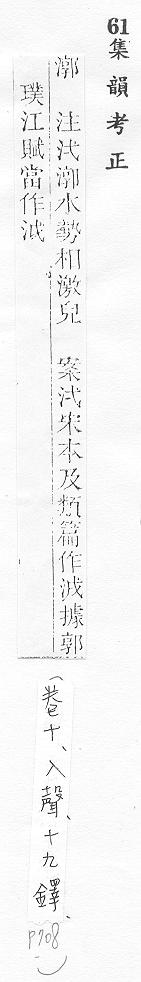 61集韻考正
漷　注泧漷水勢相激皃　案泧宋本及類篇作減據郭
璞江賦當作泧
（卷十、入聲、十九鐸、P708）